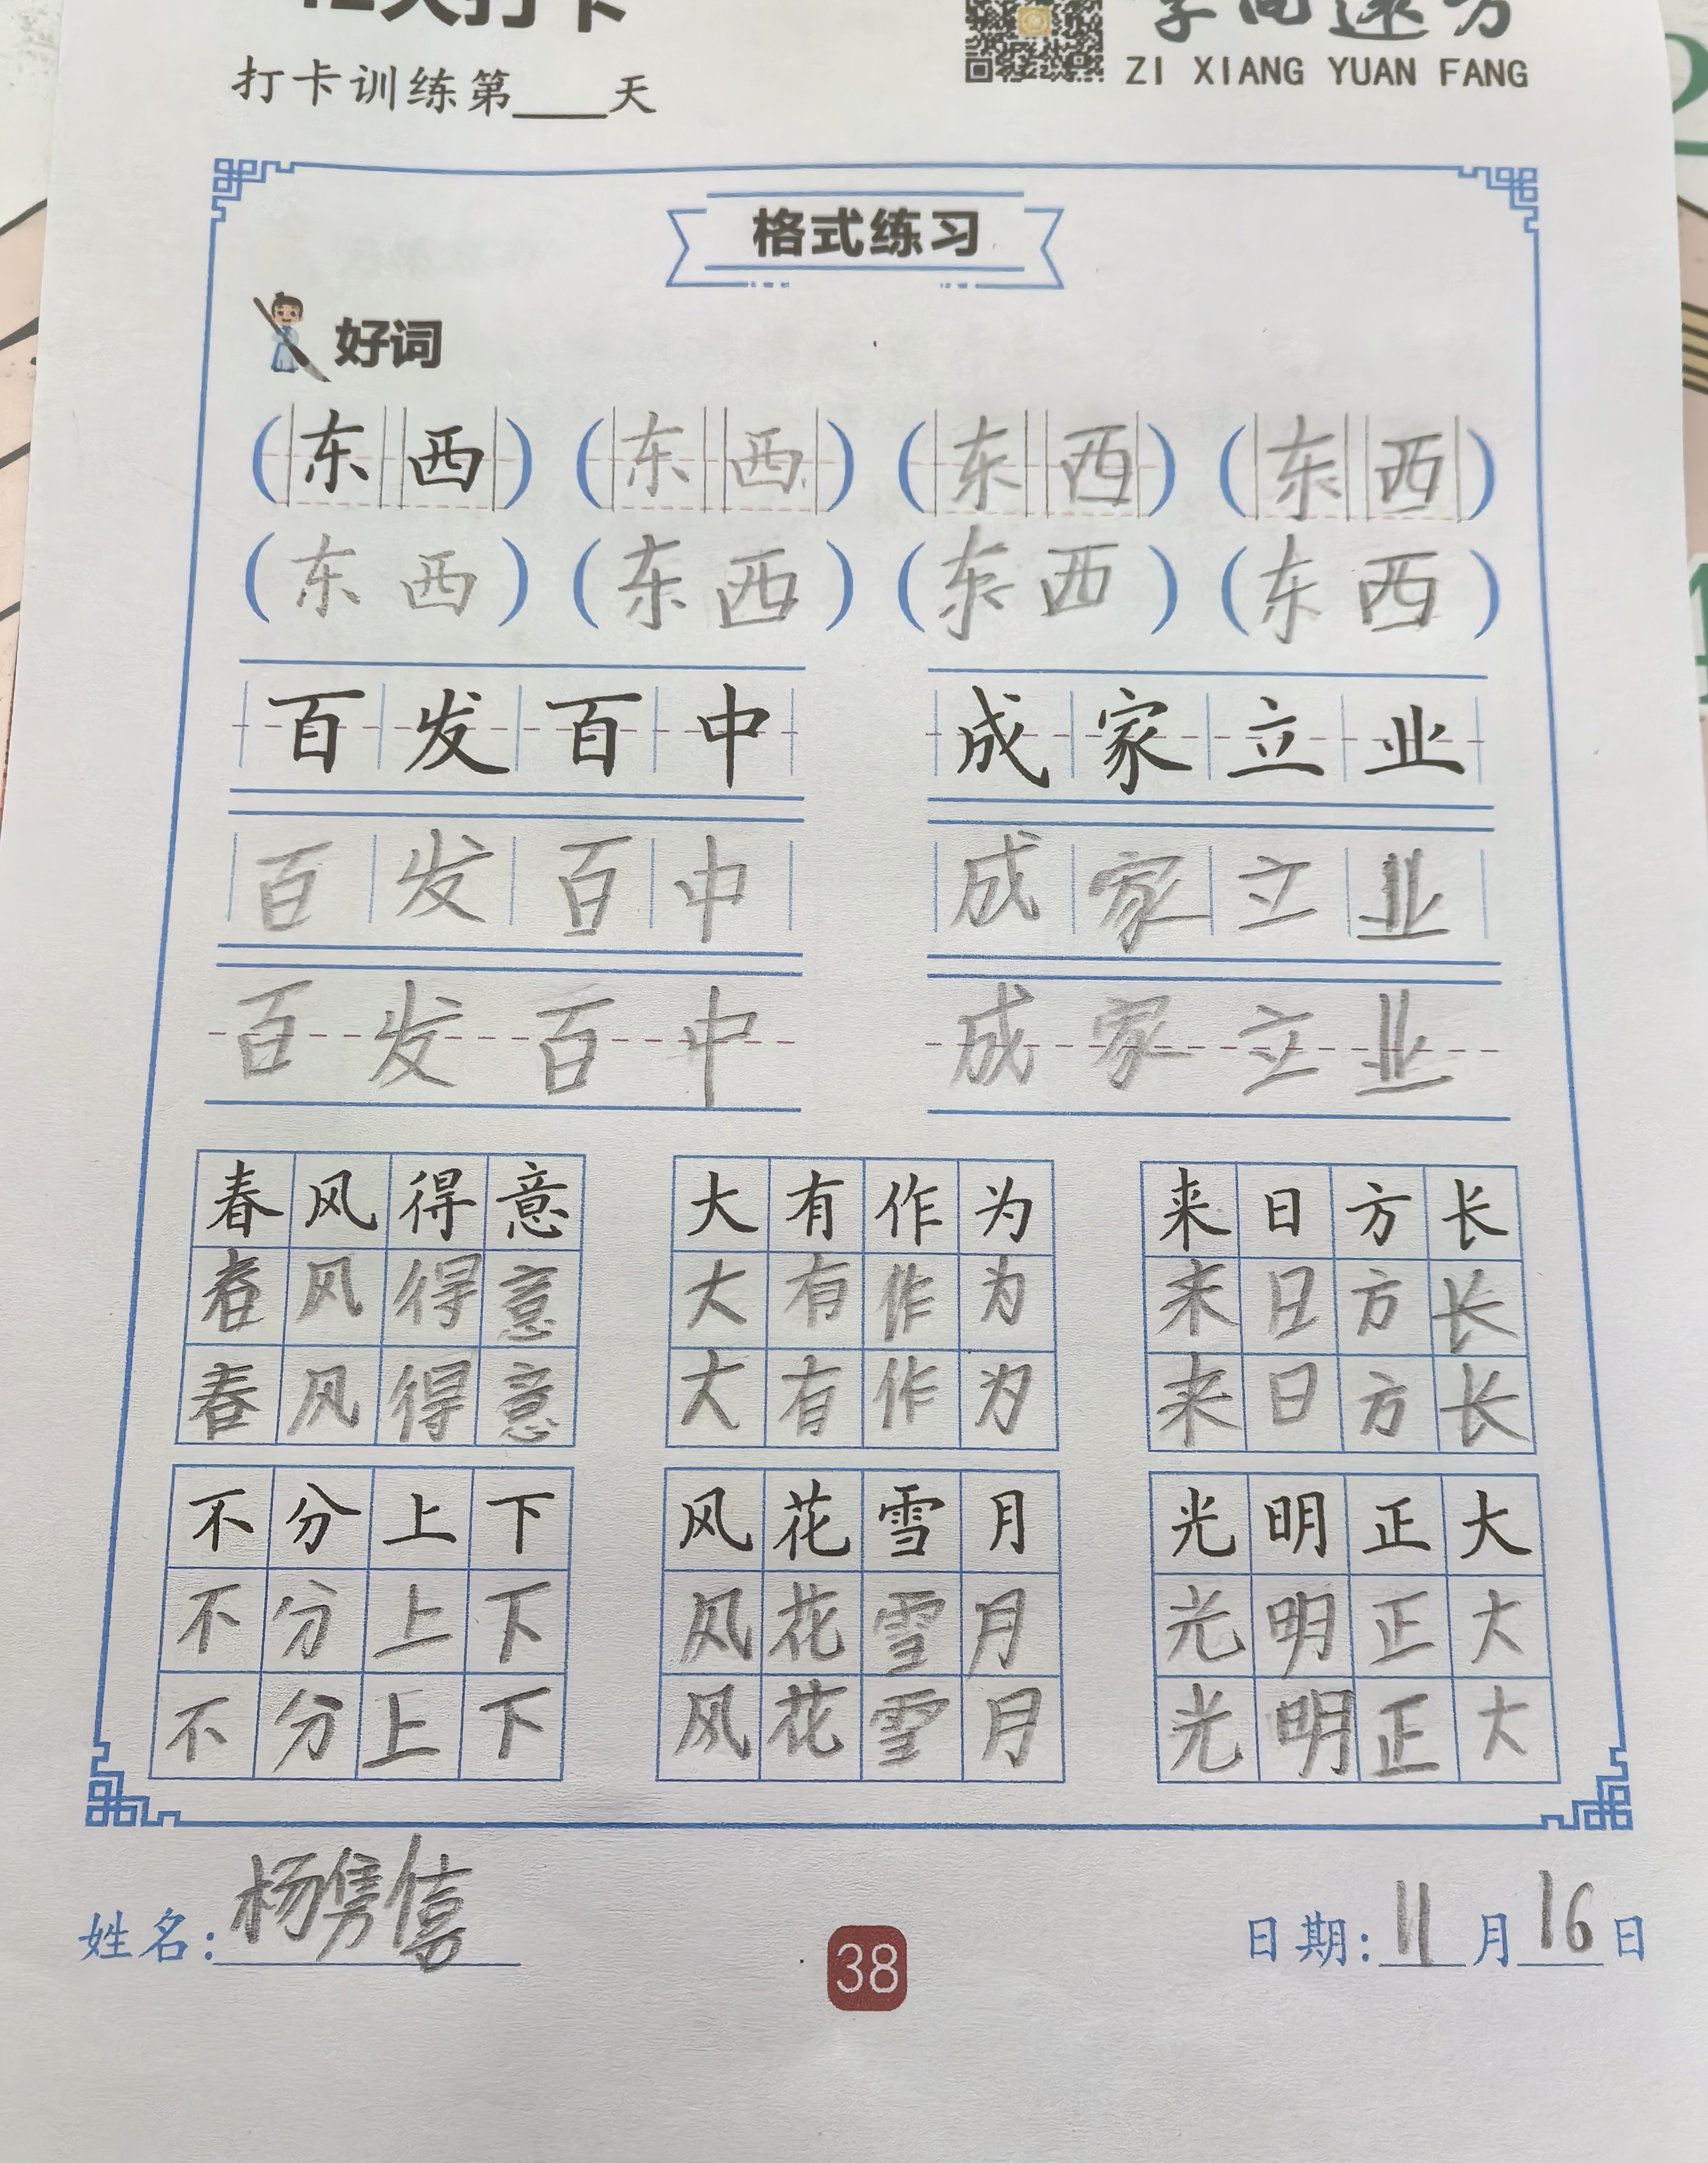 打卡训练第____天
ZI XIANG YUAN FANG
格式练习
好词
(东西) (东西) (东西) (东西)
(东西) (东西) (东西) (东西)
百发百中 成家立业
百发百中 成家立业
百发百中 成家立业
春风得意 大有作为 来日方长
春风得意 大有作为 来日方长
春风得意 大有作为 来日方长
不分上下 风花雪月 光明正大
不分上下 风花雪月 光明正大
不分上下 风花雪月 光明正大
姓名:杨隽僖 日期:11月16日
38